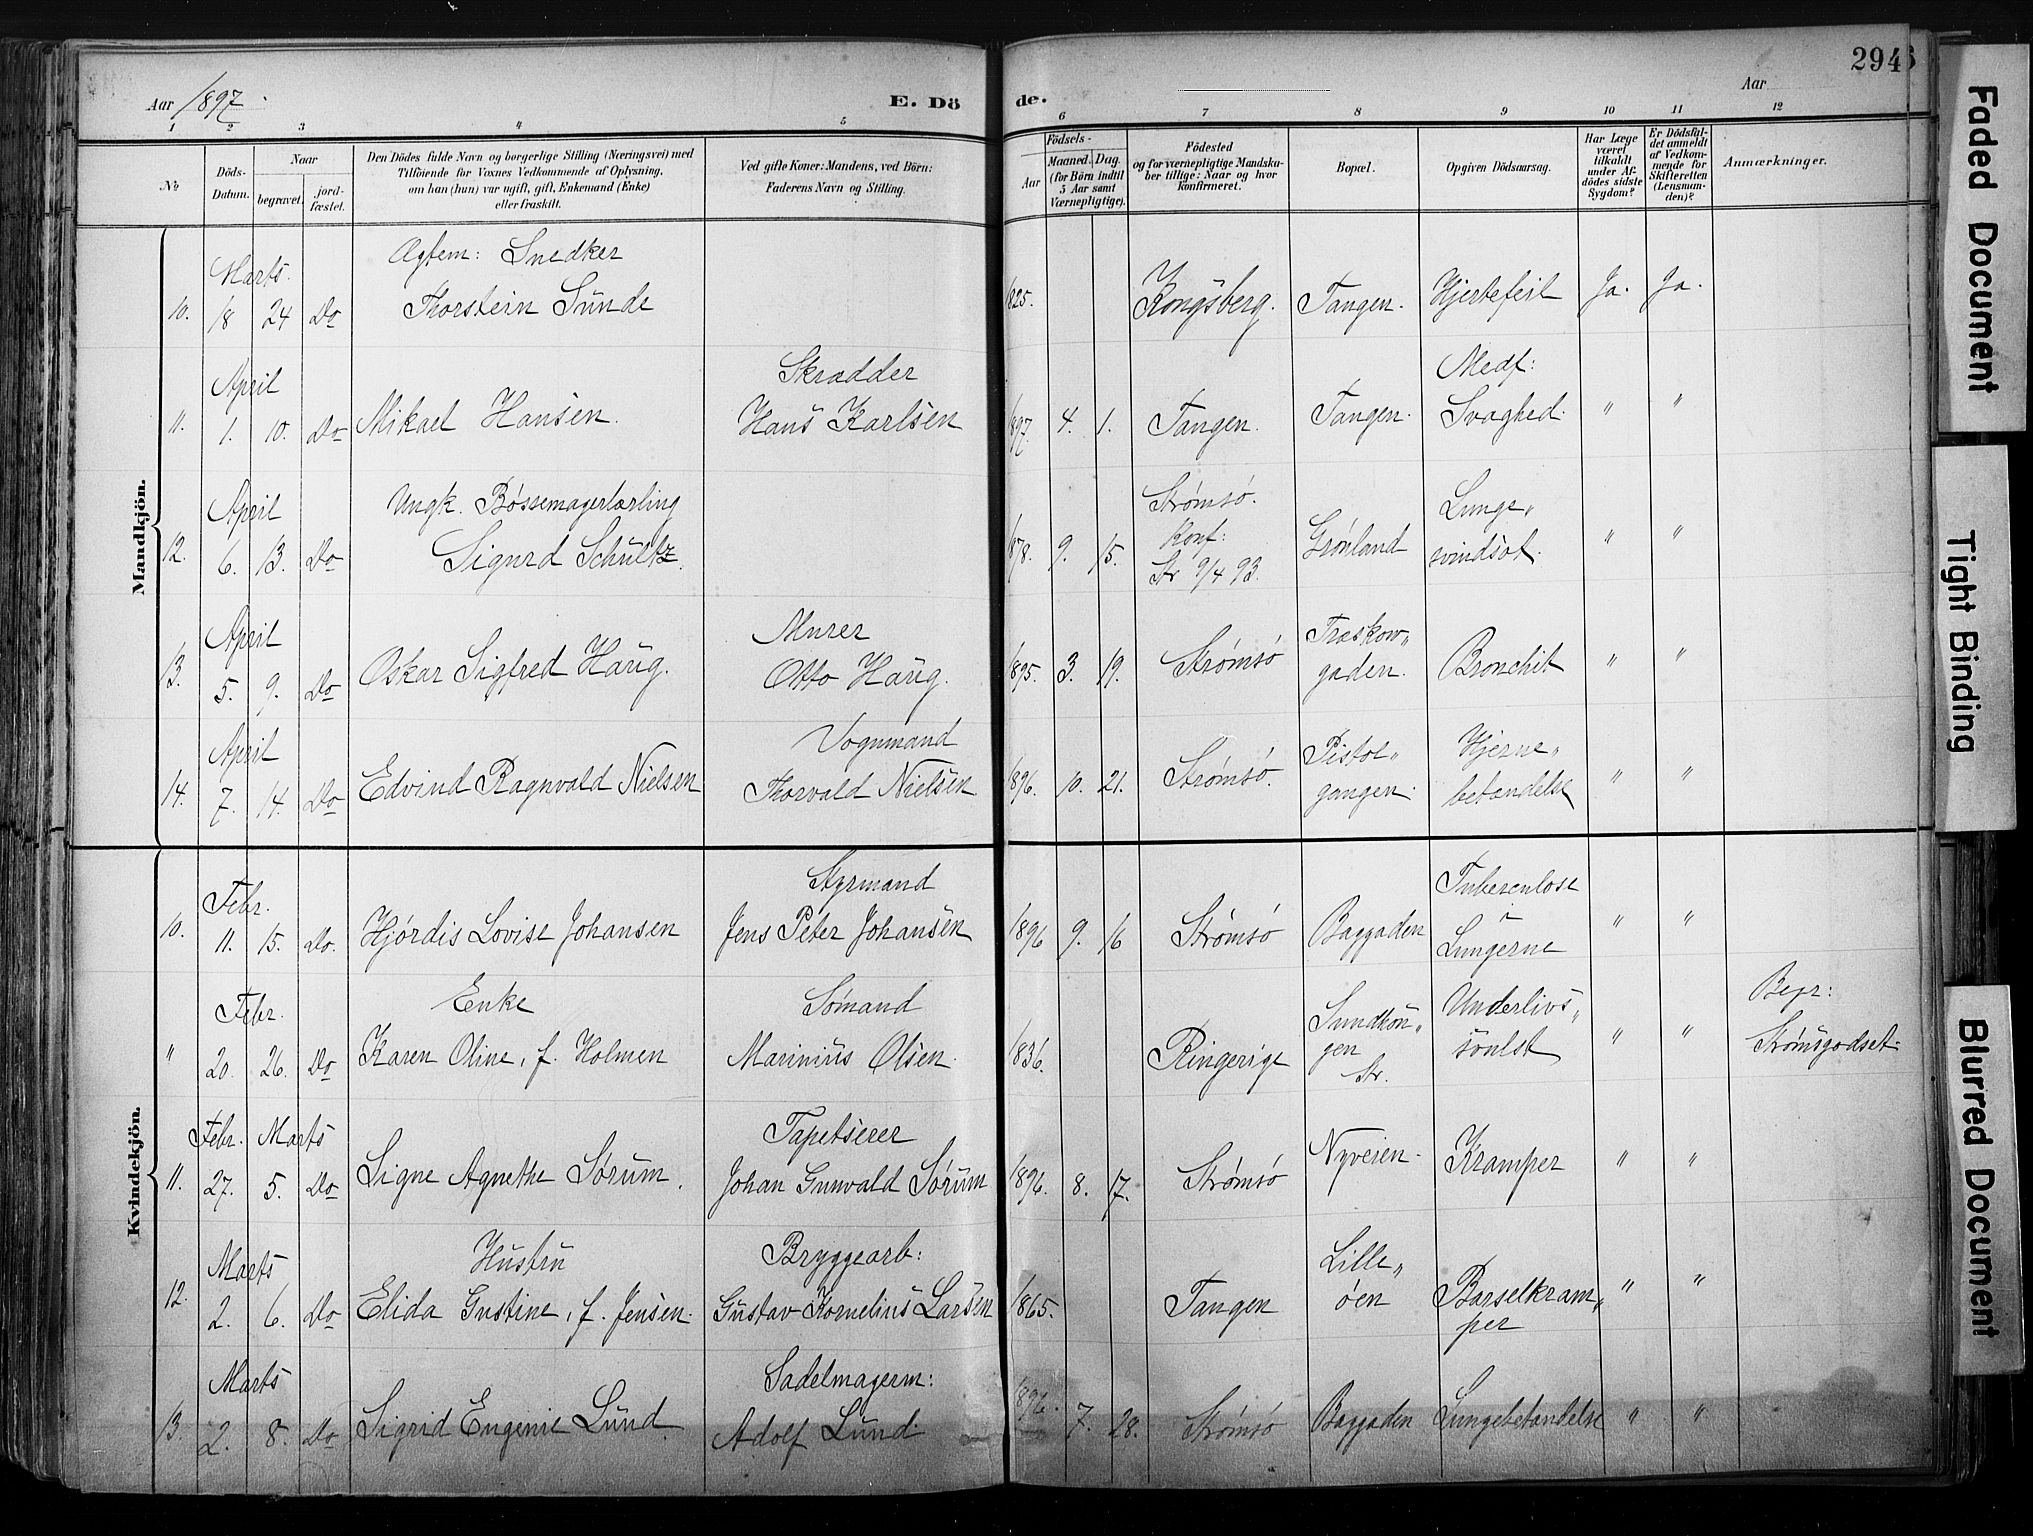 2946
Aar 1897.
E. Dö
de.
Aar
1 2 3 4 5 6 7 8 9 10 11 12
№
Döds-
Datum.
Naar
begravet.
jord-
fæstet.
Den Dödes fulde Navn og borgerlige Stilling (Næringsvei) med
Tilföiende for Voxnes Vedkommende af Oplysning,
om han (hun) var ugift, gift, Enkemand (Enke)
eller fraskilt.
Ved gifte Koner: Mandens, ved Börn:
Faderens Navn og Stilling.
Födsels-
Aar
Maaned. Dag.
(for Börn indtil
5 Aar samt
Værnepligtige).
Födested
og for værnepligtige Mandska-
ber tillige: Naar og hvor
Konfirmeret.
Bopæl.
Opgiven Dödsaarsag.
Har Læge
været
tilkaldt
under Af-
dödes sidste
Sygdom?
Er Dödsfal-
det anmeldt
af Vedkom-
mende for
Skifteretten
(Lensman-
den)?
Anmærkninger.
Mandkjön.
Marts. Ægtem: Snedker
10. 18 24 Do Thorstein Sunde 1825. Kongsberg. Tangen. Hjertefeil Ja. Ja.
April Skrædder Medf:
11. 1. 10. Do Mikael Hansen. Hans Karlsen 1897. 4. 1. Tangen. Tangen. Svaghed. " "
April Ungk. Bøssemagerlærling Strømsø. Lunge"
12. 6. 13. Do Sigurd Schultz. 1878. 9. 15. Konf: Grønland svindsot. " "
Str 9/4 93.
April Murer Træskow"
13. 5. 9. Do Oskar Sigfred Haug. Otto Haug. 1895. 3. 19. Strømsø gaden. Bronchit " "
April Vognmand Pistol" Hjerne"
14. 7. 14. Do Edvind Ragnvald Nielsen Thorvald Nielsen 1896. 10. 21. Strømsø. gangen. betændelse " "
Kvindekjön.
Febr. Styrmand Tuberculose
10. 11. 15. Do. Hjørdis Lovise Johansen Jens Peter Johansen 1896 9. 16 Strømsø Baggaden i Lungerne " "
Febr. Enke Sømand Sundkou" Underlivs" Begr:
" 20. 26. Do Karen Oline, f. Holmen Marinius Olsen. 1836. Ringerige gen svulst " " Strømsgodset.
Str.
Febr. Marts Tapetserer
11. 27. 5. Do Signe Agnethe Sørum. Johan Gunvald Sørum 1896. 8. 17. Strømsø Nyveien. Kramper " "
Marts Hustru Bryggearb: Lille"
12. 2. 6. Do Elida Gustine, f. Jensen. Gustav Kornelius Larsen 1865. Tangen øen Barselkram" " "
per
Marts Sadelmagerm:
13. 2. 8. Do Sigrid Eugenie Lund. Adolf Lund. 1896. 7. 28. Strømsø Baggaden Lungebetændelse " "
Faded Document
Tight Binding
Blurred Document